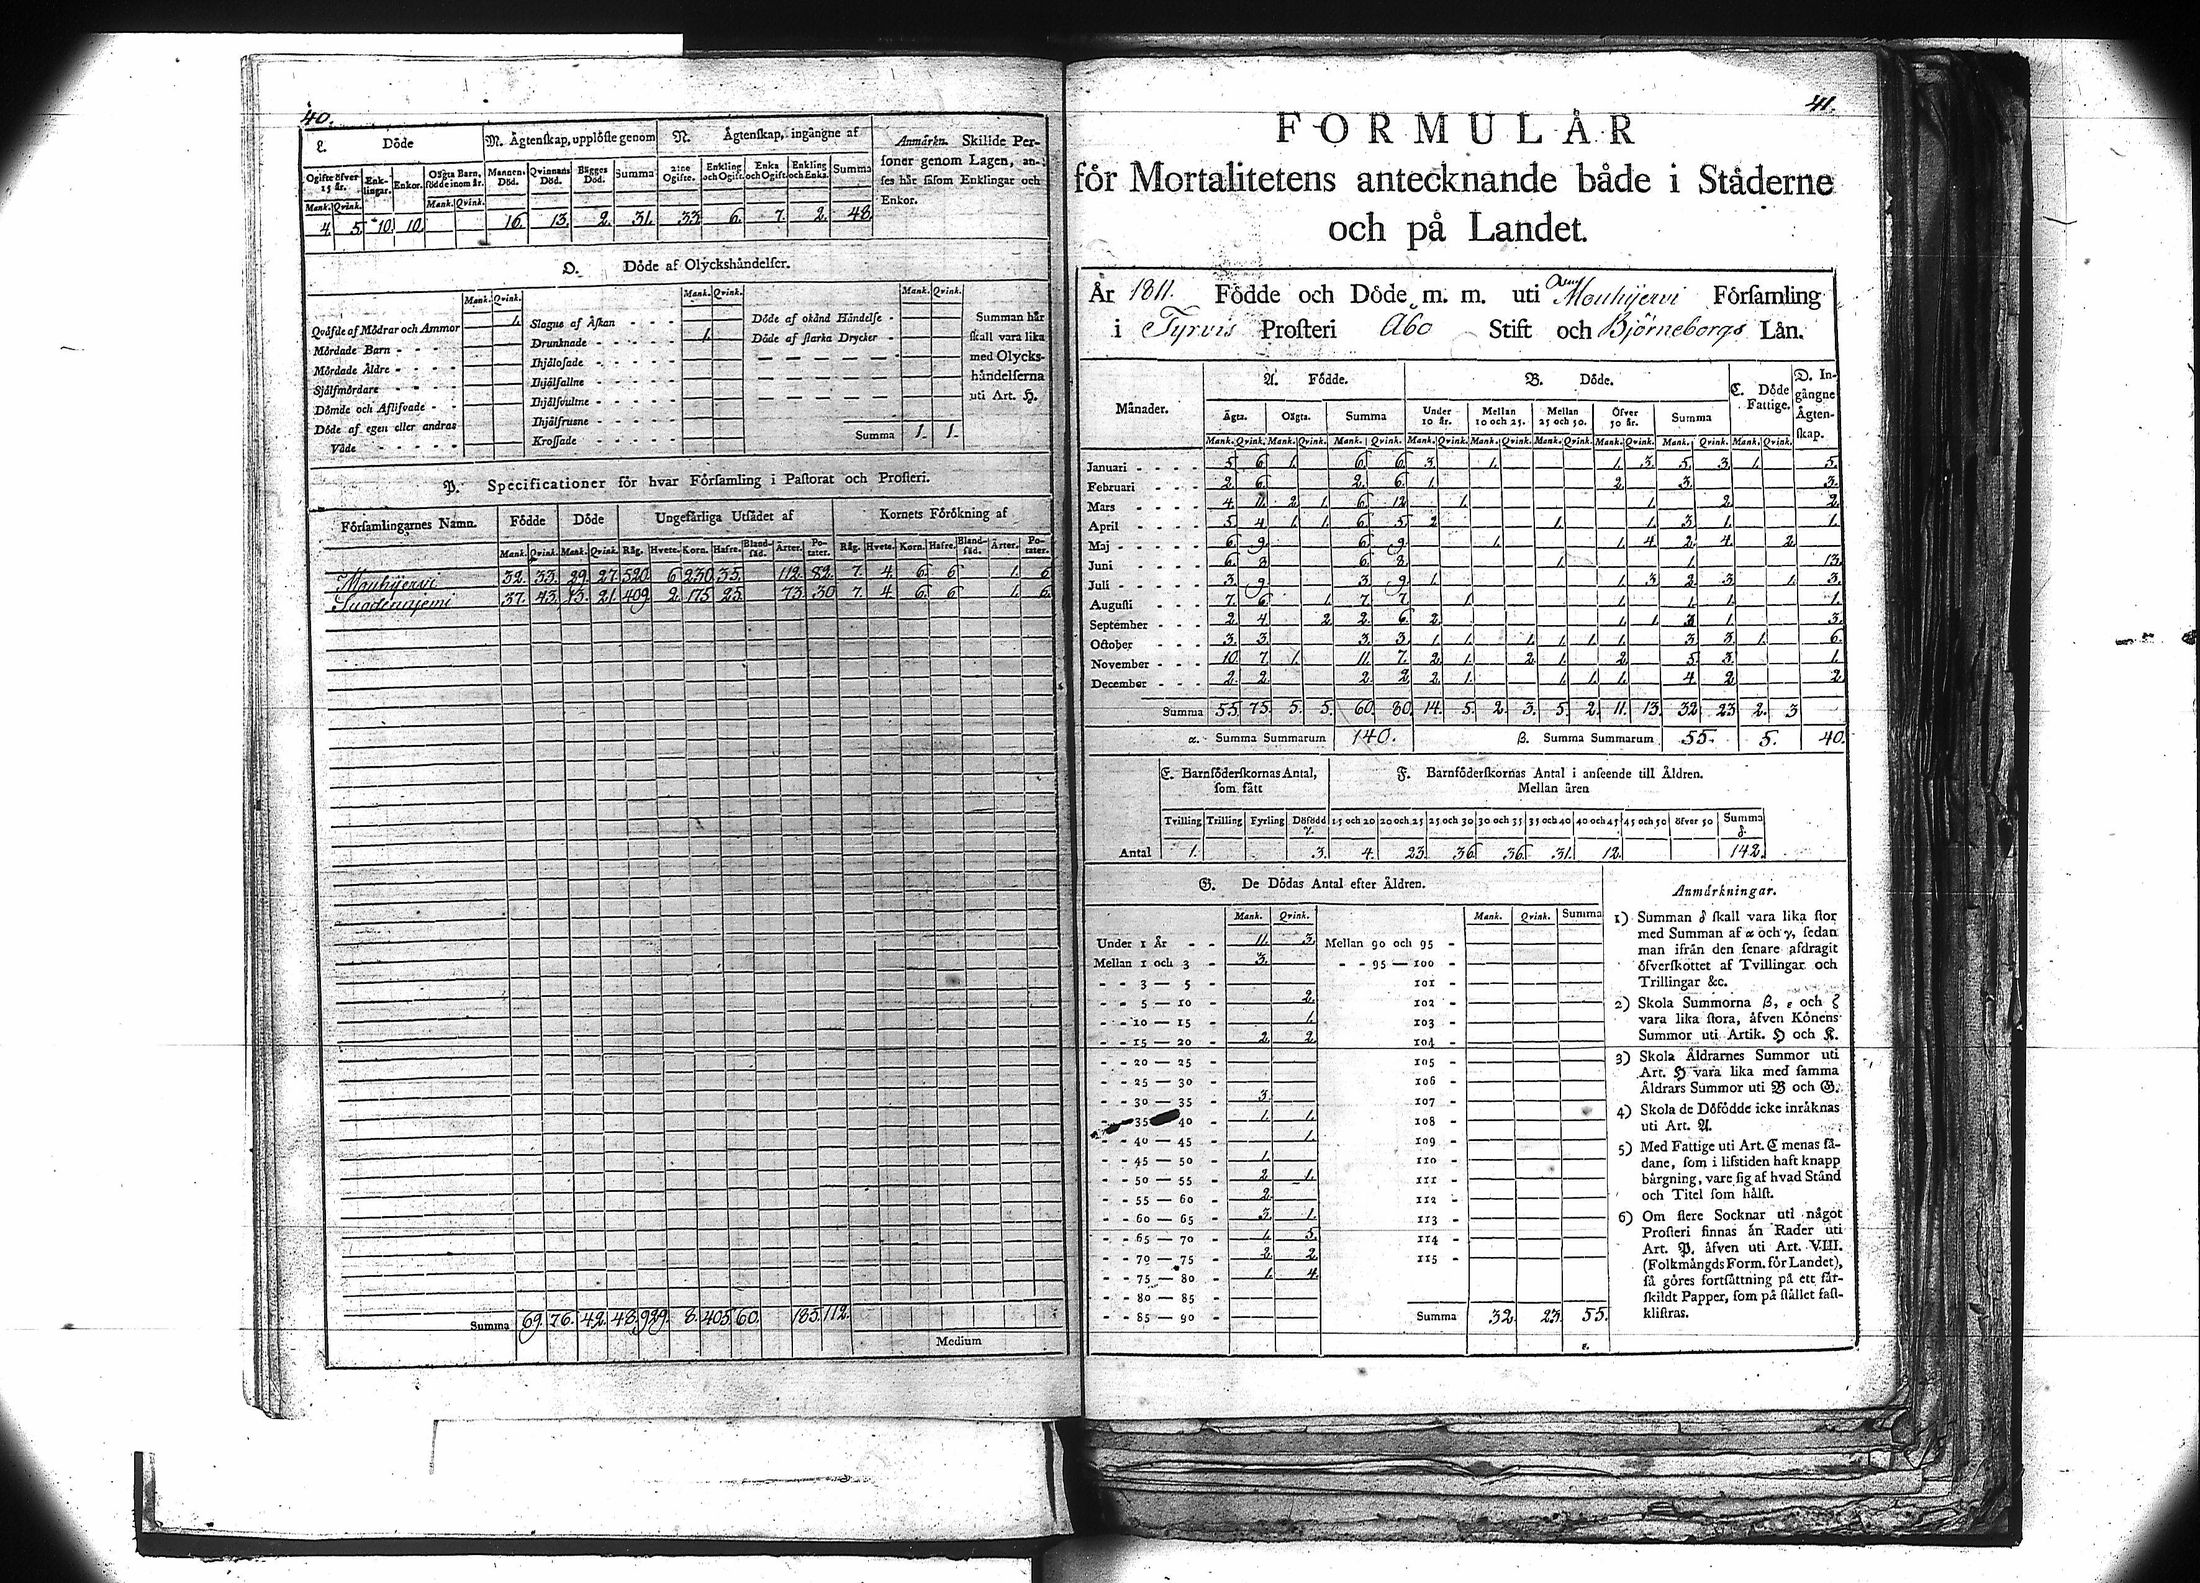 40.
L. Döde
M. Ågtenskap, upplöste genom
N. Ågtenskap, ingångne af
Anmärkn. Skilide Per-
soner genom Lagen, an-
ses här såsom Enklingar och
Enkor.
Ogifte öfver 15 år. Enk-lingar. Enkor. Oägta Barn, födde inom år. Mannens Död. Qvinnans Död. Bägges Död. Summa 2:ne Ogifte. Enkling och Ogift. Enka och Ogift. Enkling och Enka. Summa
Mank. Qvink. Mank. Qvink.
4. 5. 10. 10. 16. 13. 2. 31. 33. 6. 7. 2. 48.
O. Döde af Olyckshändelser.
Mank. Qvink. Mank. Qvink. Mank. Qvink.
Qväfde af Mödrar och Ammor 1.
Mördade Barn - - - -
Mördade Äldre - - - -
Självmördare - - - -
Dömde och Aflifvade - -
Döde af egen eller andras
Våde - - - -
Slagne af Åskan - - - -
Drunknade - - - - - 1.
Ihjälosade - - - -
Ihjälfallne - - - -
Ihjälsvultne - - - -
Ihjälfrusne - - - -
Krossade - - - -
Döde af okänd Händelse -
Döde af starka Drycker -
Summa 1. 1.
Summan här
skall vara lika
med Olycks-
händelserna
uti Art. H.
P. Specificationer för hvar Församling i Pastorat och Prosteri.
Församlingarnes Namn. Födde Döde Ungefärliga Utsädet af Kornets Förökning af
Mank. Qvink. Mank. Qvink. Råg. Hvete. Korn. Hafre. Bland-säd. Ärter. Po-tater. Råg. Hvete. Korn. Hafre. Bland-säd. Ärter. Po-tater.
Mouhijervi 32. 33. 29. 27. 520. 6 230. 35. 112. 82. 7. 4. 6. 6 1. 6
Suodenniemi 37. 43. 13. 21. 409. 2. 175. 25. 73. 30 7. 4. 6. 6 1. 6.
Summa 69. 76. 42. 48. 929. 8. 405. 60. 185. 112.
Medium
41.
FORMULÅR
för Mortalitetens antecknande både i Städerne
och på Landet.
År 1811. Födde och Döde m. m. uti Mouhijervi Församling
i Tyrvis Prosteri Åbo Stift och Björneborgs Län.
Månader. A. Födde. B. Döde. C. Döde Fattige. D. In-gångne Ågten-skap.
Ägta. Oägta. Summa Under 10 år. Mellan 10 och 25. Mellan 25 och 50. Öfver 50 år. Summa
Mank. Qvink. Mank. Qvink. Mank. Qvink. Mank. Qvink. Mank. Qvink. Mank. Qvink. Mank. Qvink. Mank. Qvink. Mank. Qvink.
Januari - - - - 5 6 1. 6 6 3. 1. 1. 3. 5. 3. 1. 5.
Februari - - - 2. 6. 2. 6. 1. 2. 3. 3.
Mars - - - 4 11. 2 1. 6 12. 1. 1. 2. 2.
April - - - 5 4 1. 1. 6 5 2 1. 1. 3 1. 1.
Maj - - - - 6. 9. 6 9. 1. 1. 4 2. 4. 2.
Juni - - - 6. 8 6 8. 1. 1. 13.
Juli - - - - 3. 9. 3. 9. 1. 1. 3. 2. 3. 1. 3.
Augusti - - - 7. 6. 1. 7. 7. 1. 1. 1. 1. 1.
September - - - 2. 4. 2 2. 6 2. 1. 1. 3 1. 3.
October - - - 3. 3. 3. 3. 1. 1. 1. 1. 1. 1. 3. 3. 1. 6.
November - - - 10. 7. 1. 11. 7. 2. 1. 2. 1. 2. 5. 3. 1.
December - - - 2. 2. 2. 2 2. 1. 1. 1. 1. 4. 2 2
Summa 55. 75. 5. 5. 60. 80. 14. 5. 2. 3. 5. 2. 11. 13. 32. 23. 2. 3
α. Summa Summarum 140. β. Summa Summarum 55. 5. 40.
E. Barnföderskornas Antal, som fått
F. Barnföderskornas Antal i anseende till Åldren. Mellan åren
Tvilling Trilling Fyrling Dödfödd γ. 15 och 20 20 och 25 25 och 30 30 och 35 35 och 40 40 och 45 45 och 50 öfver 50 Summa δ.
Antal 1. 3. 4. 23. 36. 36. 31. 12. 142.
G. De Dödas Antal efter Åldren.
Mank. Qvink. Mank. Qvink. Summa
Under 1 År - - 11. 3. Mellan 90 och 95 -
Mellan 1 och 3 - 3. - - 95 — 100 -
- - 3 — 5 - 101 -
- - 5 — 10 - 2. 102 -
- - 10 — 15 - 1. 103 -
- - 15 — 20 - 2. 2. 104 -
- - 20 — 25 - 105 -
- - 25 — 30 - 106 -
- - 30 — 35 - 3. 107 -
- - 35 40 - 1. 1. 108 -
- - 40 — 45 - 1. 109 -
- - 45 — 50 - 1. 110 -
- - 50 — 55 - 2. 1. 111 -
- - 55 — 60 - 2. 112 -
- - 60 — 65 - 3. 1. 113 -
- - 65 — 70 - 1. 5. 114 -
- - 70 — 75 - 2. 2. 115 -
- - 75 — 80 - 1. 4.
- - 80 — 85 -
- - 85 — 90 - Summa 32. 23. 55.
ε.
Anmärkningar.
1) Summan δ skall vara lika stor
med Summan af α och γ, sedan
man ifrån den senare afdragit
öfverskottet af Tvillingar och
Trillingar &c.
2) Skola Summorna β, ε och ζ
vara lika stora, äfven Könens
Summor uti Artik. H och K.
3) Skola Åldrarnes Summor uti
Art. H vara lika med samma
Åldrars Summor uti B och G.
4) Skola de Dödfödde icke inräknas
uti Art. A.
5) Med Fattige uti Art. C menas så-
dane, som i lifstiden haft knapp
bärgning, vare sig af hvad Stånd
och Titel som hälst.
6) Om flere Socknar uti något
Prosteri finnas än Rader uti
Art. P, äfven uti Art. VIII.
(Folkmängds Form. för Landet),
så göres fortsättning på ett sär-
skildt Papper, som på stället fast-
klistras.